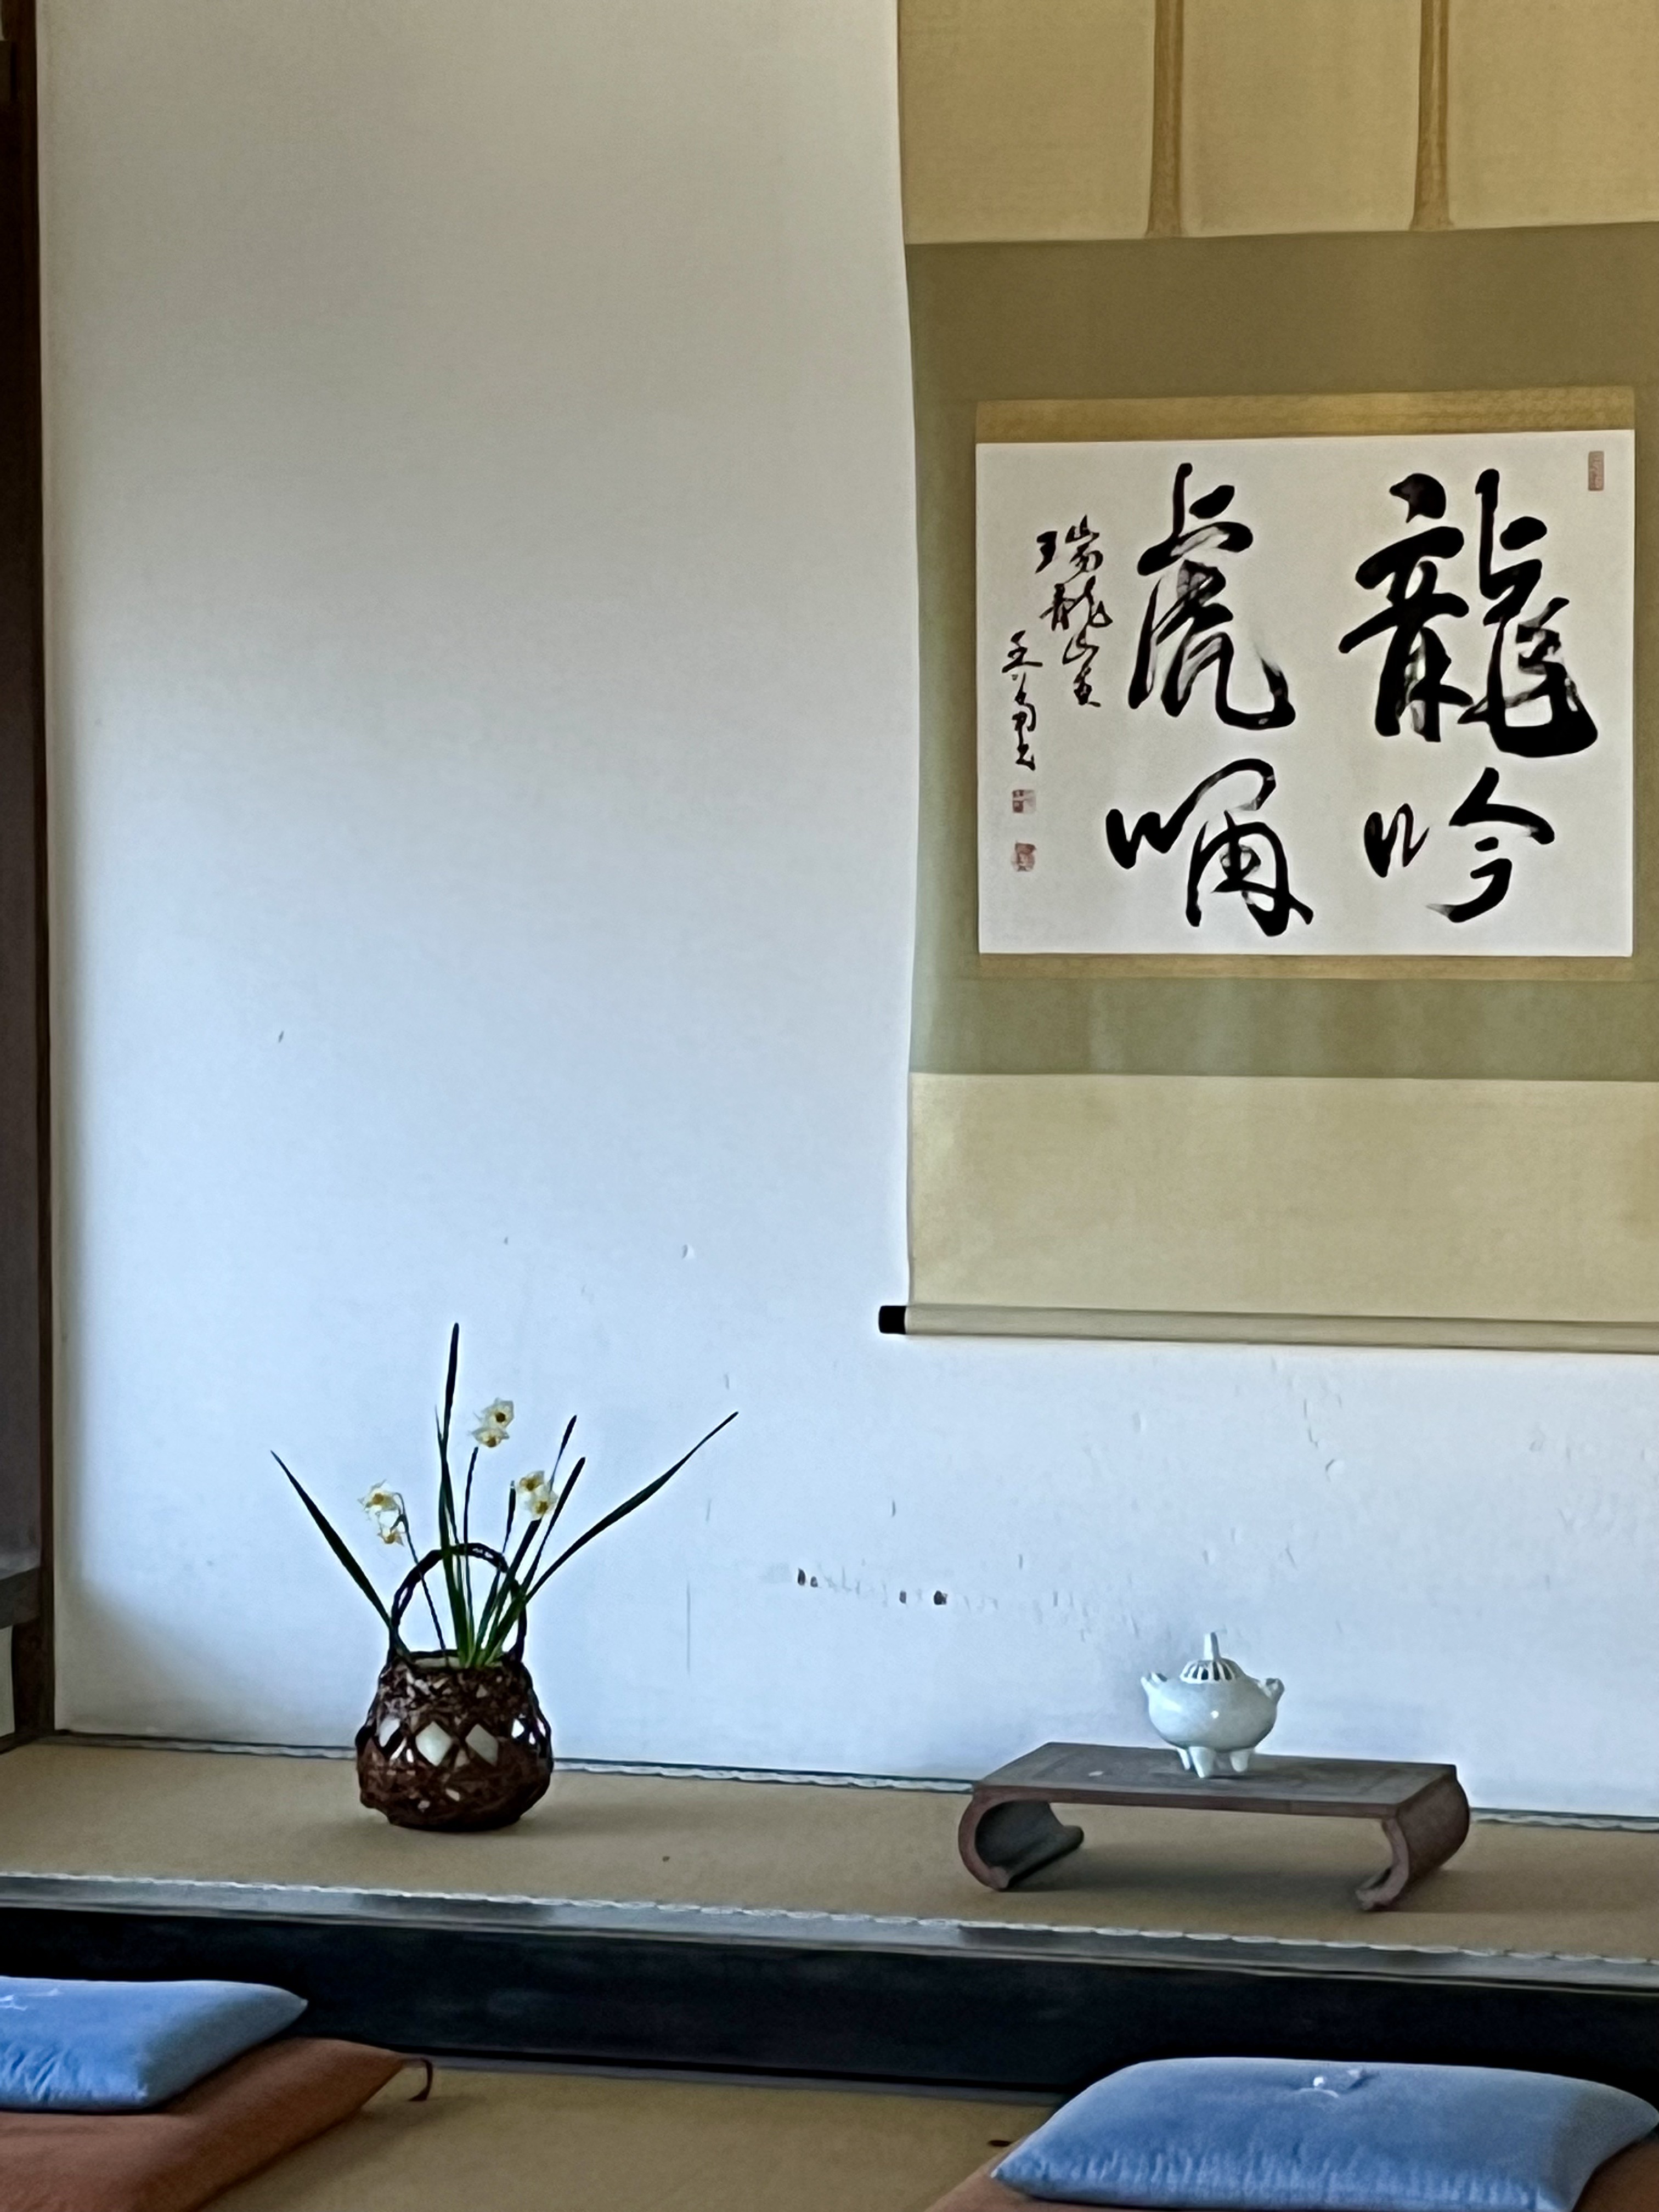 龍吟
虎嘯
瑞龍山主